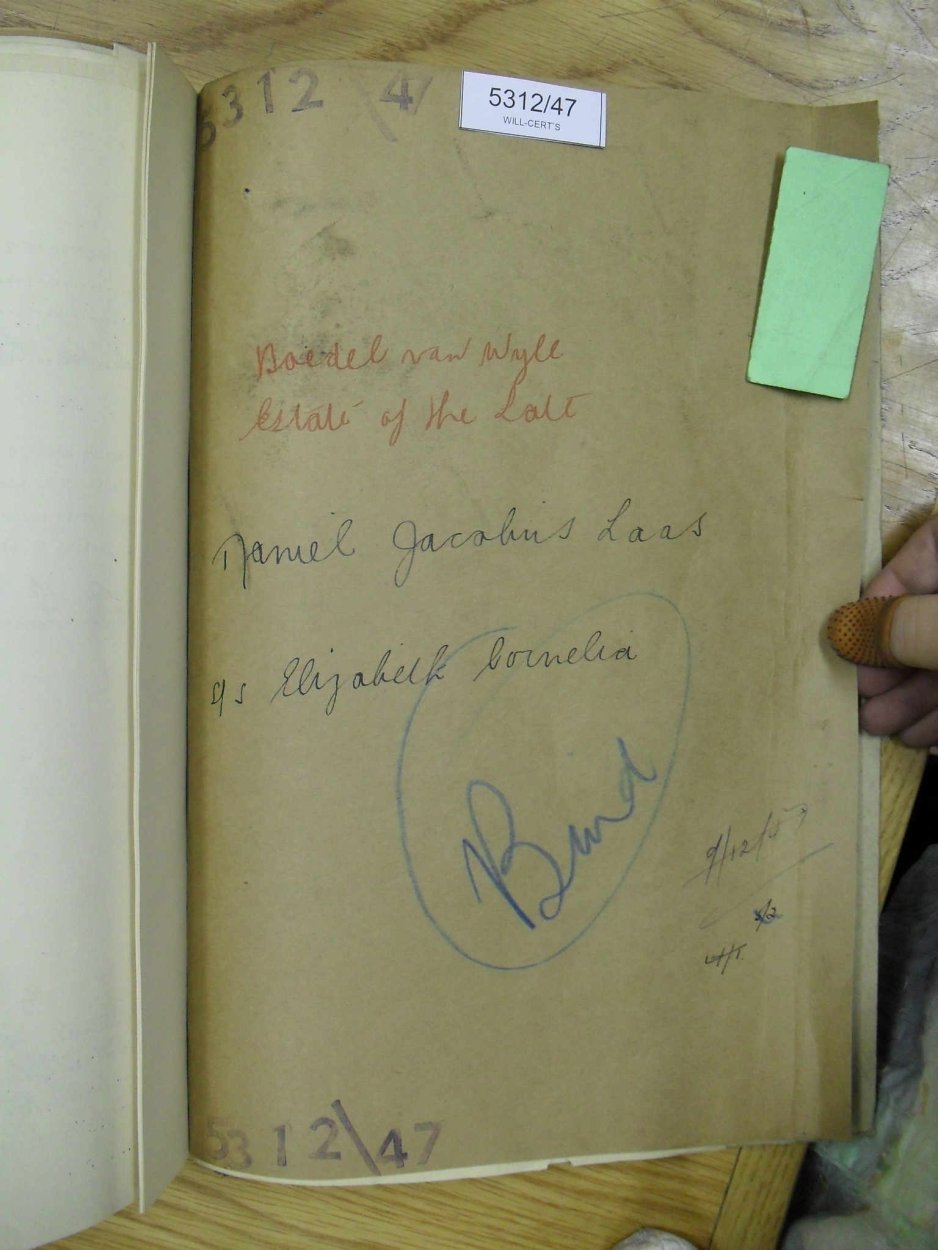 5312 \47
5312/47
WILL-CERT'S
Boedel van Wyle
Estate of the Late
Daniel Jacobus Laas
s/s Elizabeth Cornelia
Bind
9/12/57
5312\47